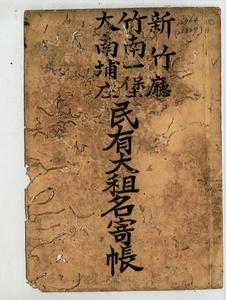 新竹廳
竹南一堡
大南埔庄
民有大租名寄帳